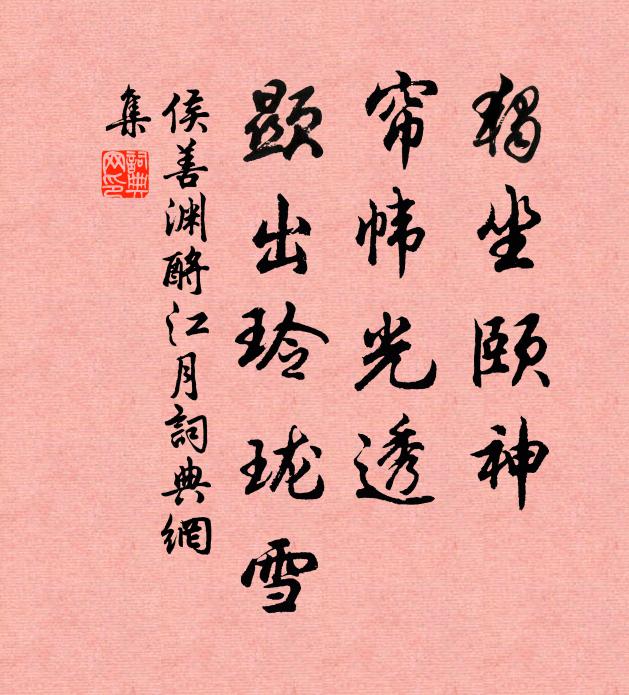 獨坐頤神
帘幃光透
顯出玲瓏雪
侯善渊酹江月詞典網
集
詞典
网印